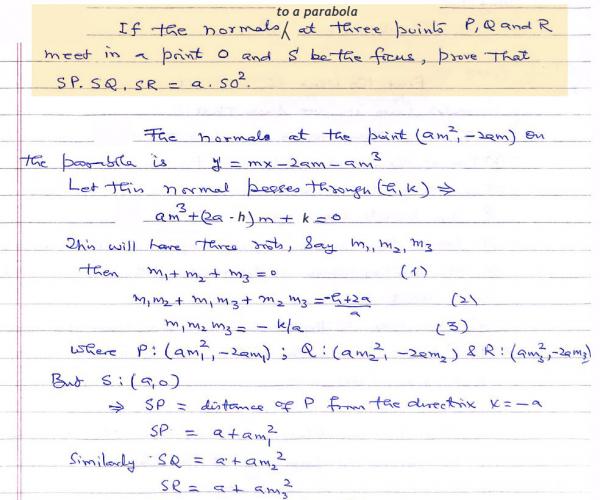 to a parabola
If the normals/ at three points P, Q and R
meet in a point O and S be the focus, prove that
SP. SQ. SR = a. SO².
The normals at the point (am², -2am) on
the parabola is y = mx - 2am - am³
Let this normal passes through (h, k) ⇒
am³ + (2a - h) m + k = 0
This will have three roots, Say m₁, m₂, m₃
then m₁ + m₂ + m₃ = 0 (1)
m₁m₂ + m₁m₃ + m₂m₃ = (-h+2a)/a (2)
m₁m₂m₃ = - k/a (3)
where P: (am₁², -2am₁) ; Q: (am₂², -2am₂) & R: (am₃², -2am₃)
But S: (a, 0)
⇒ SP = distance of P from the directrix x = -a
SP = a + am₁²
Similarly SQ = a + am₂²
SR = a + am₃²